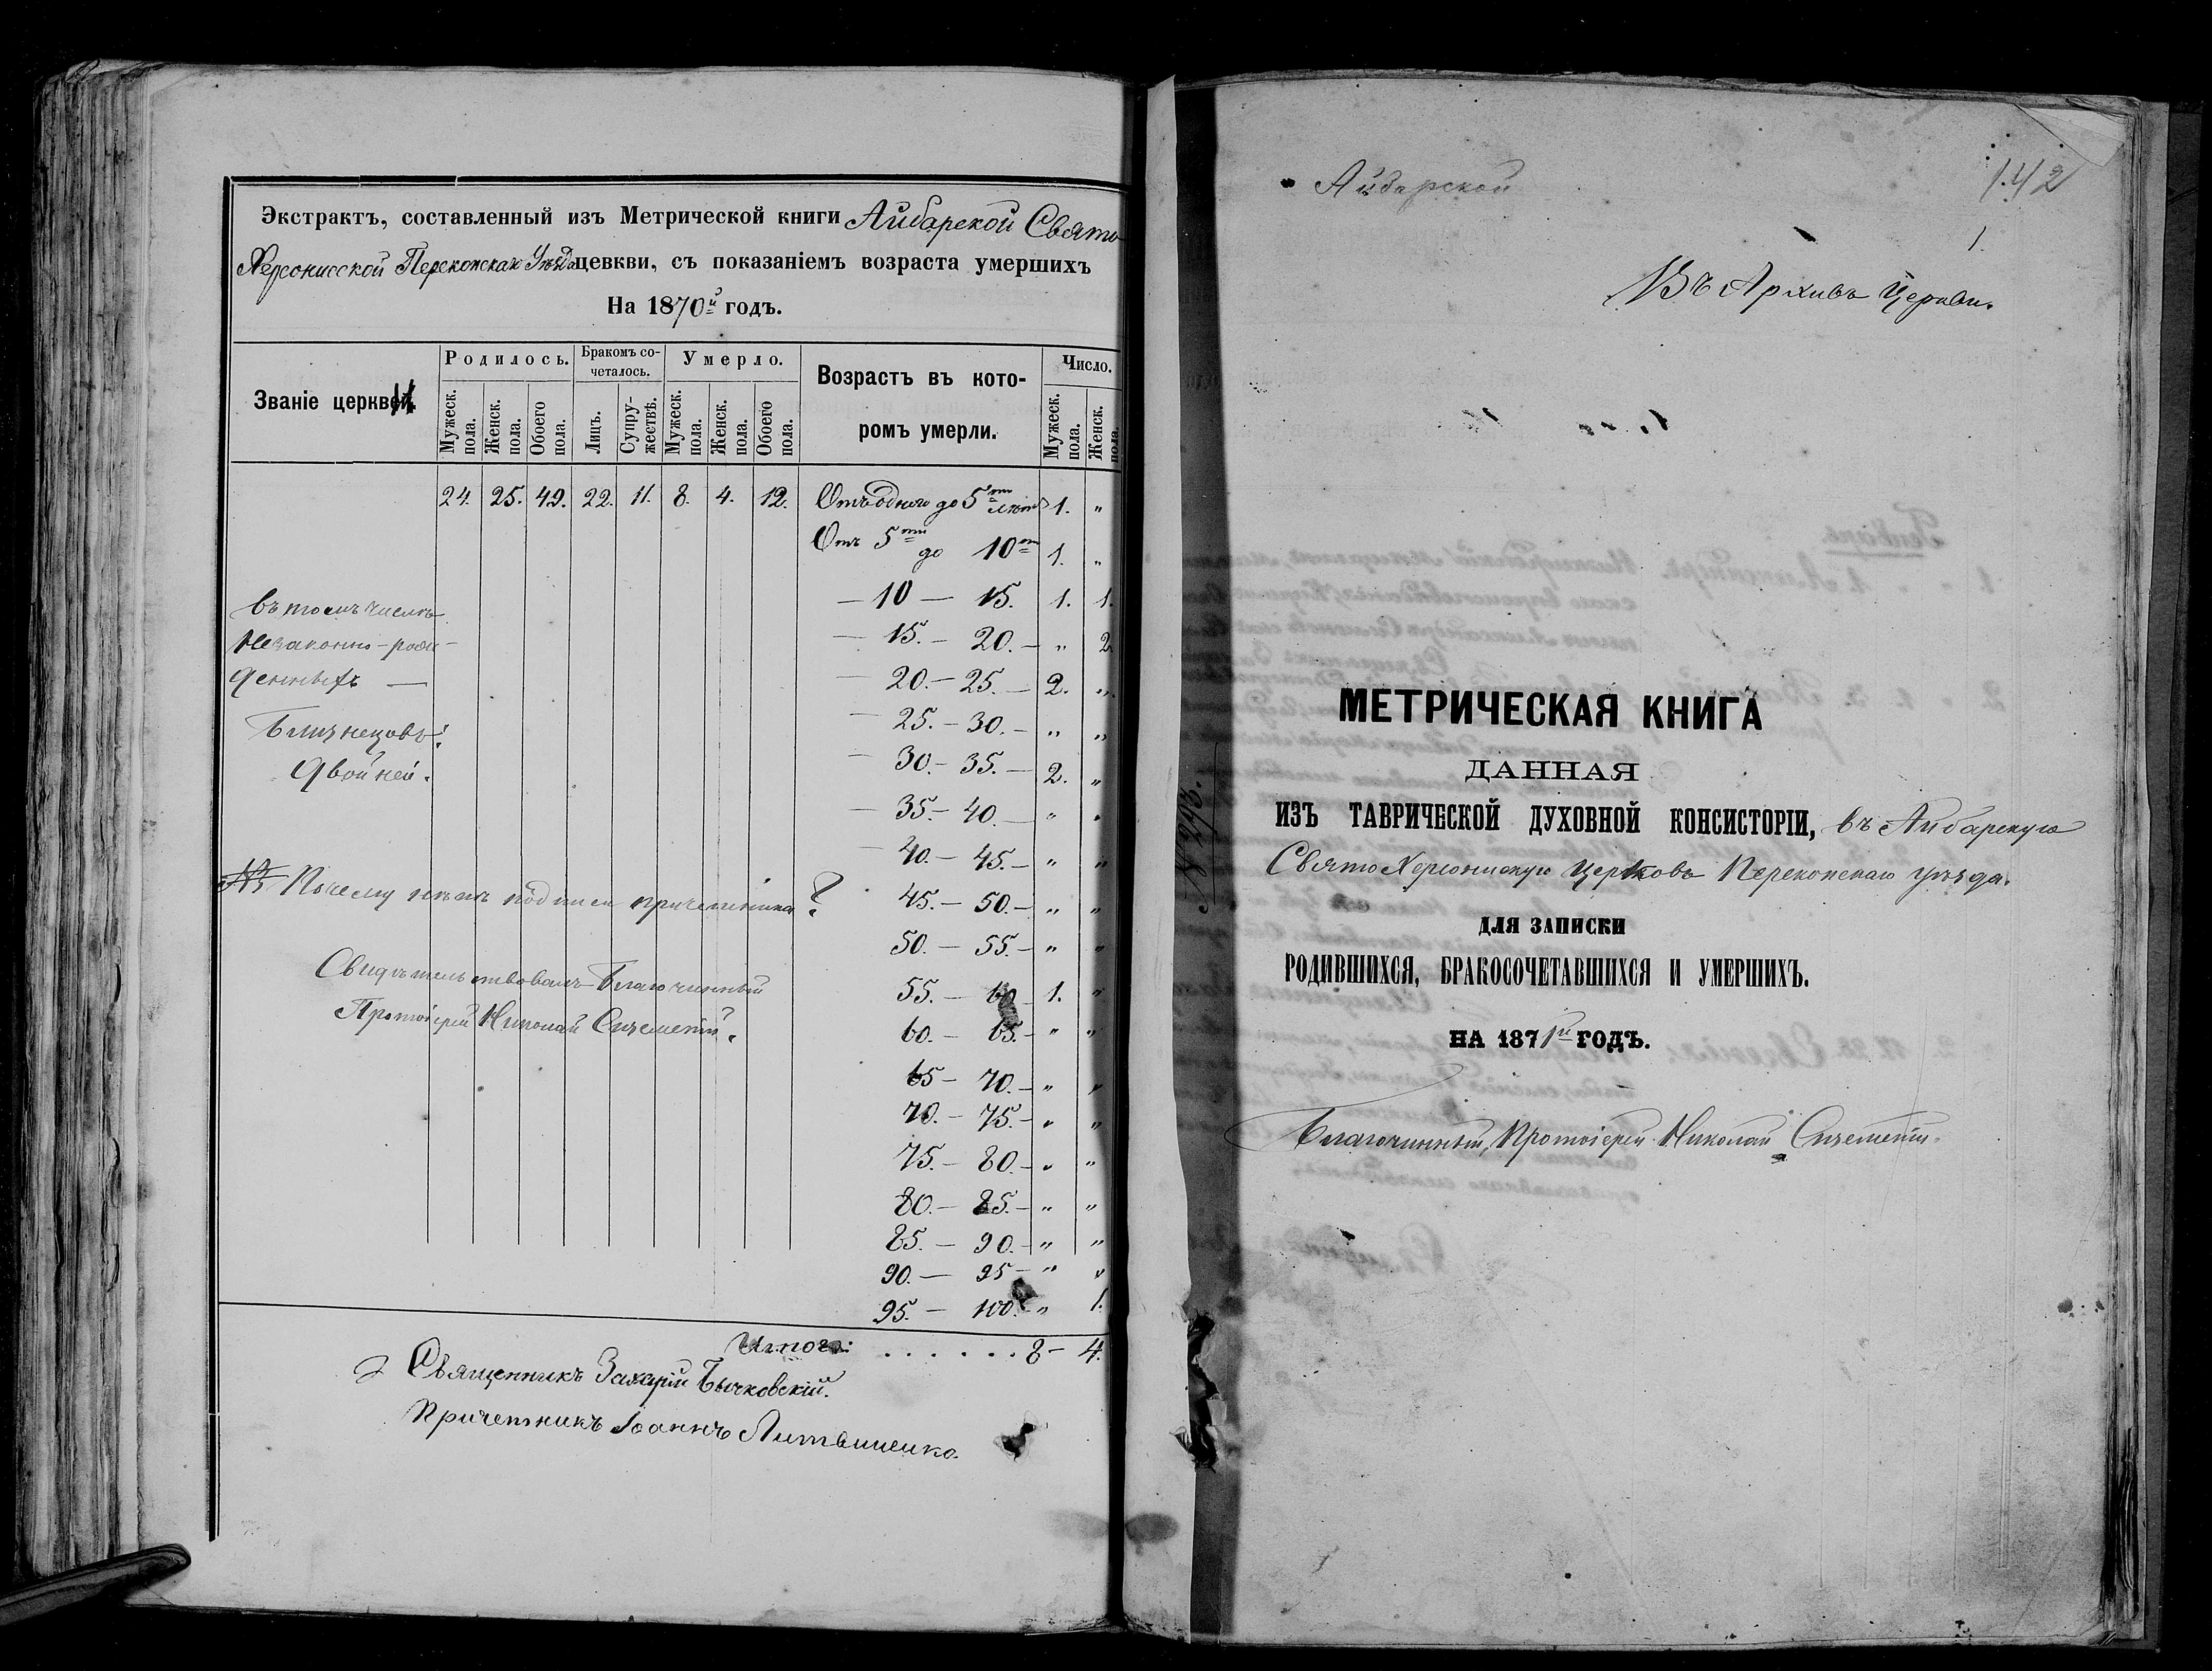 Экстрактъ, составленный изъ Метрической книги Айбарской Свято-
Херсонисской Перекопскаго Уѣзда цевкви, съ показаніемъ возраста умершихъ
На 1870й годъ.
Званіе церквей.
Родилось.
Бракомъ сочеталось.
Умерло.
Возрастъ въ которомъ умерли.
Число.
Мужеск. пола.
Женск. пола.
Обоего пола.
Лицъ.
Супружествѣ.
Мужеск. пола.
Женск. пола.
Обоего пола.
Мужеск. пола.
Женск. пола.
24. 25. 49. 22. 11. 8. 4. 12. Отъ одного до 5ти лѣтъ 1. "
Отъ 5ти до 10ти 1. "
— 10 — 15. 1. 1.
— 15. — 20. — " 2.
— 20. — 25. — 2. "
— 25. — 30. — " "
— 30. — 35. — 2. "
— 35. — 40. — " "
— 40. — 45. — " "
45. — 50. — " "
50. — 55. — " "
55. — 60 — 1. "
60. — 65. — " "
65 — 70. — " "
70. — 75. — " "
75. — 80. — " "
80. — 85. — " "
85. — 90. — " "
90. — 95 — " "
95. — 100. — " 1.
въ томъ числѣ
Незаконно-рож-
денныхъ —
Близнецовъ:
Двойней.
Почему нѣтъ подписи причетника?
Свидѣтельствовалъ Благочинный
Протоіерей Николай
Итого: . . . . . . 8 — 4.
Священникъ Захарій Бычковскій.
Причетникъ Іоаннъ Литвиненко.
Айбарской
142
1.
Въ Архивъ Церкви.
N 293.
МЕТРИЧЕСКАЯ КНИГА
ДАННАЯ
ИЗЪ ТАВРИЧЕСКОЙ ДУХОВНОЙ КОНСИСТОРІИ, въ Айбарскую
Свято Херсонискую Церковь Перекопскаго уѣзда.
ДЛЯ ЗАПИСКИ
РОДИВШИХСЯ, БРАКОСОЧЕТАВШИХСЯ И УМЕРШИХЪ.
НА 1871й ГОДЪ.
Благочинный, Протоіерей Николай